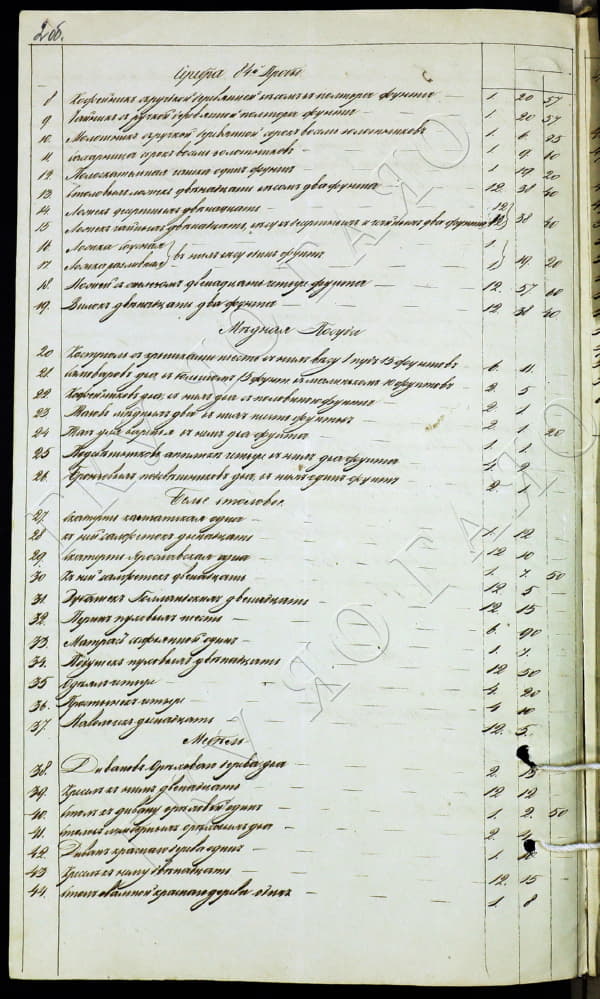 2 об.
Серебра 84й Пробы
8 Кофейникъ с ручкой деревянной весомъ въ полтора фунта 1. 20 57
9. Чайникъ с ручкой деревянной полтора фунта 1. 20 57
10. Молочникъ с ручкой деревянной сорокъ восемь золотниковъ 1. 6. 25
11. Сахарница сорокъ восемь золотниковъ 1. 9. 60
12. Полоскательная чашка одинъ фунтъ 1. 19 20
13. Столовыхъ ложекъ двенадцать весомъ два фунта 12. 38 40
14. Ложекъ десертныхъ двенадцать 12
15. Ложекъ чайныхъ двенадцать, весу въ десертныхъ и чайныхъ два фунта 12 38 40
16. Ложка 1.
17. Ложка разливная въ нихъ весу одинъ фунтъ 1. 19. 20
18. Ножей двенадцать фунта 12. 57 60
19. Вилокъ двенадцать два фунта 12. 38 40.
Медная Посуда
20 Кострюль съ крышками шесть въ нихъ весу 1 пудъ 15 фунтовъ 6. 11.
21. Самоваровъ два, въ большомъ 15 фунт. въ маленькомъ 10 фунтовъ 2. 5
22. Кофейниковъ два, въ нихъ два с половиною фунта 2. 1
23 Тазовъ медныхъ два въ нихъ фунтъ 2. 1 20
24 Тазъ для варенья въ немъ два фунта 1. 1
25 Подсвечниковъ четыре въ нихъ два фунта 4. 2
26. Бронзовыхъ подсвечниковъ два, въ нихъ одинъ фунтъ 2. 1
Белье столовое.
27. Скатерть камчатская одна 1. 12
28 къ ней салфетокъ двенадцать 12 10
29. Скатерть Ярославская одна 1. 7. 50
30 Къ ней салфетокъ двенадцать 12 5
31. двенадцать 12. 15
32. Перинъ пуховыхъ шесть 6. 90
33. Матрасъ сафьянной одинъ 1. 7.
34. Подушекъ пуховыхъ двенадцать 12 50
35 Одеялъ четыре 4. 20
36. Простынь четыре 4 10
37. Наволокъ двенадцать 12. 5.
Мебель
38. Дивановъ Орехового дерева два 2. 15
39. Креслъ къ нимъ двенадцать 12 12
40. Столъ къ дивану ореховой одинъ 1. 2. 50
41. Столовъ ломберныхъ ореховыхъ два 2. 4
42. Диванъ красного дерева одинъ 1. 10
43 Креслъ къ нему двенадцать 12. 15
44. Столъ красного дерева одинъ 1. 8
ГКУ ЯО ГАЯО